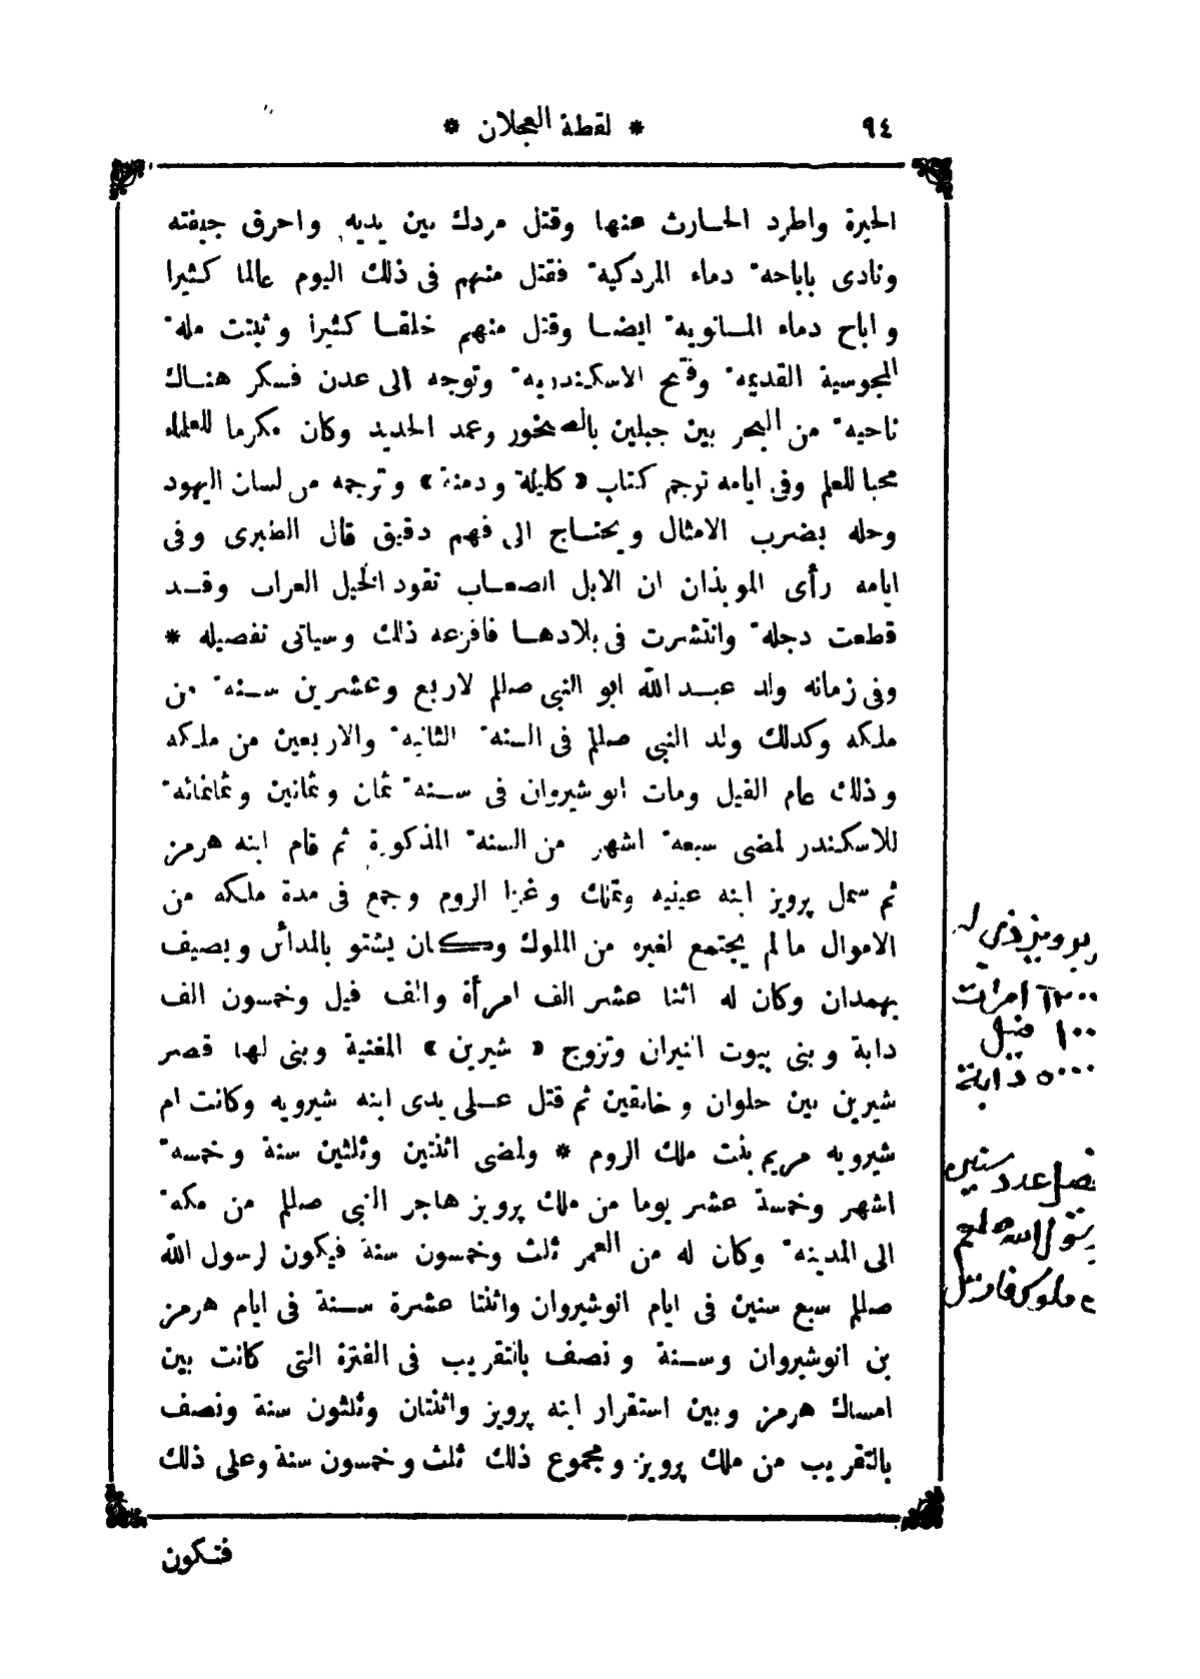 ٩٤
* لقطة العجلان *
الحيرة واطرد الحارث عنها وقتل مردك بين يديه واحرق جيفته
ونادى باباحة دماء المردكية فقتل منهم فى ذلك اليوم عالما كثيرا
واباح دماء المانوية ايضا وقتل منهم خلقا كثيرا وثبتت ملة
المجوسية القديمة وفتح الاسكندرية وتوجه الى عدن فسكر هناك
ناحية من البحر بين جبلين بالصخور وعمد الحديد وكان مكرما للعلماء
محبا للعلم وفى ايامه ترجم كتاب «كليلة ودمنة» وترجمه من لسان اليهود
وحله بضرب الامثال ويحتاج الى فهم دقيق قال الطبرى وفى
ايامه رأى الموبذان ان الابل الصعاب تقود الخيل العراب وقد
قطعت دجلة وانتشرت فى بلادها فافزعه ذلك وسياتى تفصيله *
وفى زمانه ولد عبد الله ابو النبى صللم لاربع وعشرين سنة من
ملكه وكذلك ولد النبى صللم فى السنة الثانية والاربعين من ملكه
وذلك عام الفيل ومات انوشيروان فى سنة ثمان وثمانين وثمانمائة
للاسكندر لمضى سبعة اشهر من السنة المذكورة ثم قام ابنه هرمز
ثم سمل پرويز ابنه عينيه وتملك وغزا الروم وجمع فى مدة ملكه من
الاموال ما لم يجتمع لغيره من الملوك وكان يشتو بالمدائن ويصيف
بهمدان وكان له اثنا عشر الف امرأة والف فيل وخمسون الف
دابة وبنى بيوت النيران وتزوج «شيرين» المغنية وبنى لها قصر
شيرين بين حلوان وخانقين ثم قتل على يدى ابنه شيرويه وكانت ام
شيرويه مريم بنت ملك الروم * ولمضى اثنتين وثلثين سنة وخمسة
اشهر وخمسة عشر يوما من ملك پرويز هاجر النبى صللم من مكة
الى المدينة وكان له من العمر ثلث وخمسون سنة فيكون لرسول الله
صللم سبع سنين فى ايام انوشيروان واثنتا عشرة سنة فى ايام هرمز
بن انوشيروان وسنة ونصف بالتقريب فى الفترة التى كانت بين
امساك هرمز وبين استقرار ابنه پرويز واثنتان وثلثون سنة ونصف
بالتقريب من ملك پرويز ومجموع ذلك ثلث وخمسون سنة وعلى ذلك
فتكون
١٢٠٠٠ امرات
١٠٠ فيل
٥٠٠٠٠ دابة
عدد سنين
الله صلعم
ملوك فارس